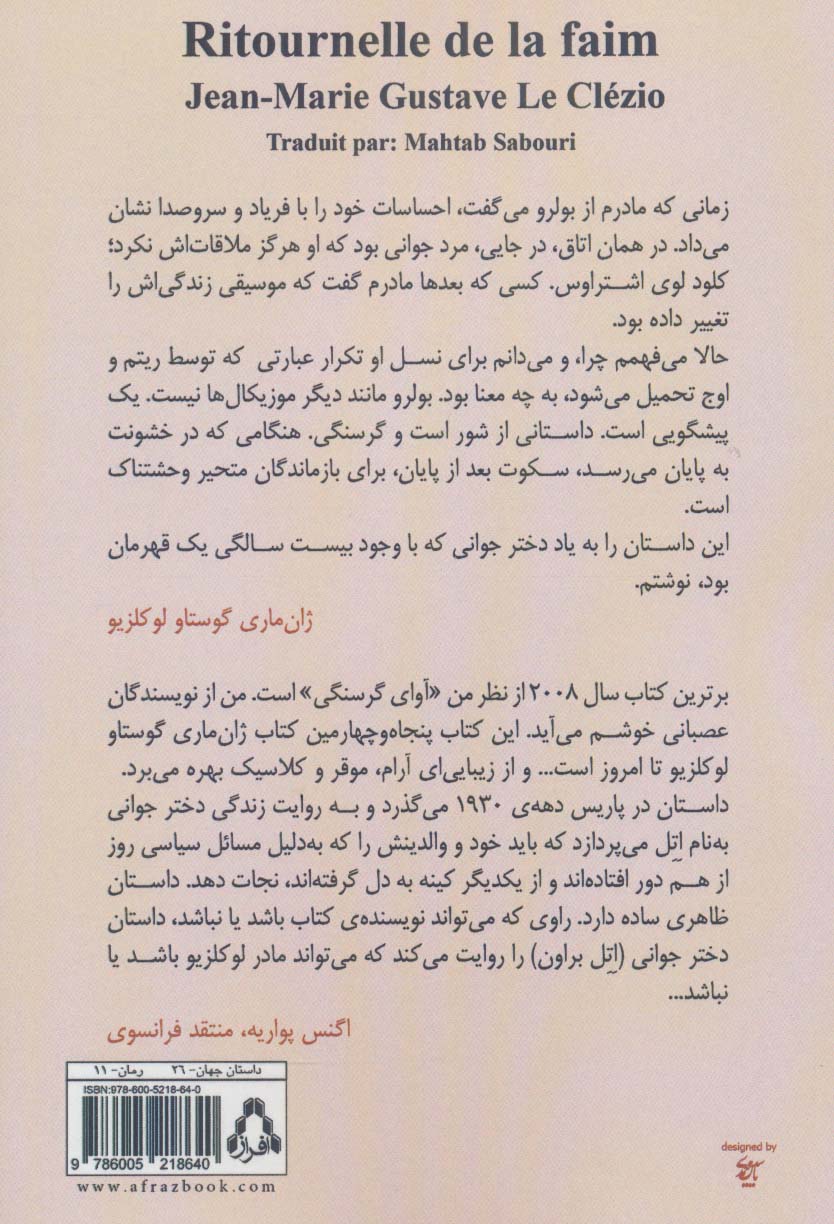 Ritournelle de la faim
Jean-Marie Gustave Le Clézio
Traduit par: Mahtab Sabouri
زمانی که مادرم از بولرو می‌گفت، احساسات خود را با فریاد و سروصدا نشان
می‌داد. در همان اتاق، در جایی، مرد جوانی بود که او هرگز ملاقات‌اش نکرد؛
کلود لوی اشتراوس. کسی که بعدها مادرم گفت که موسیقی زندگی‌اش را
تغییر داده بود.
حالا می‌فهمم چرا، و می‌دانم برای نسل او تکرار عبارتی که توسط ریتم و
اوج تحمیل می‌شود، به چه معنا بود. بولرو مانند دیگر موزیکال‌ها نیست. یک
پیشگویی است. داستانی از شور است و گرسنگی. هنگامی که در خشونت
به پایان می‌رسد، سکوت بعد از پایان، برای بازماندگان متحیر وحشتناک
است.
این داستان را به یاد دختر جوانی که با وجود بیست سالگی یک قهرمان
بود، نوشتم.
ژان‌ماری گوستاو لوکلزیو
برترین کتاب سال ۲۰۰۸ از نظر من «آوای گرسنگی» است. من از نویسندگان
عصبانی خوشم می‌آید. این کتاب پنجاه‌وچهارمین کتاب ژان‌ماری گوستاو
لوکلزیو تا امروز است... و از زیبایی‌ای آرام، موقر و کلاسیک بهره می‌برد.
داستان در پاریس دهه‌ی ۱۹۳۰ می‌گذرد و به روایت زندگی دختر جوانی
به‌نام اِتِل می‌پردازد که باید خود و والدینش را که به‌دلیل مسائل سیاسی روز
از هم دور افتاده‌اند و از یکدیگر کینه به دل گرفته‌اند، نجات دهد. داستان
ظاهری ساده دارد. راوی که می‌تواند نویسنده‌ی کتاب باشد یا نباشد، داستان
دختر جوانی (اِتِل براون) را روایت می‌کند که می‌تواند مادر لوکلزیو باشد یا
نباشد...
اگنس پواریه، منتقد فرانسوی
داستان جهان-۲۶ رمان-۱۱
ISBN:978-600-5218-64-0
افراز
9 786005 218640
www.afrazbook.com
designed by